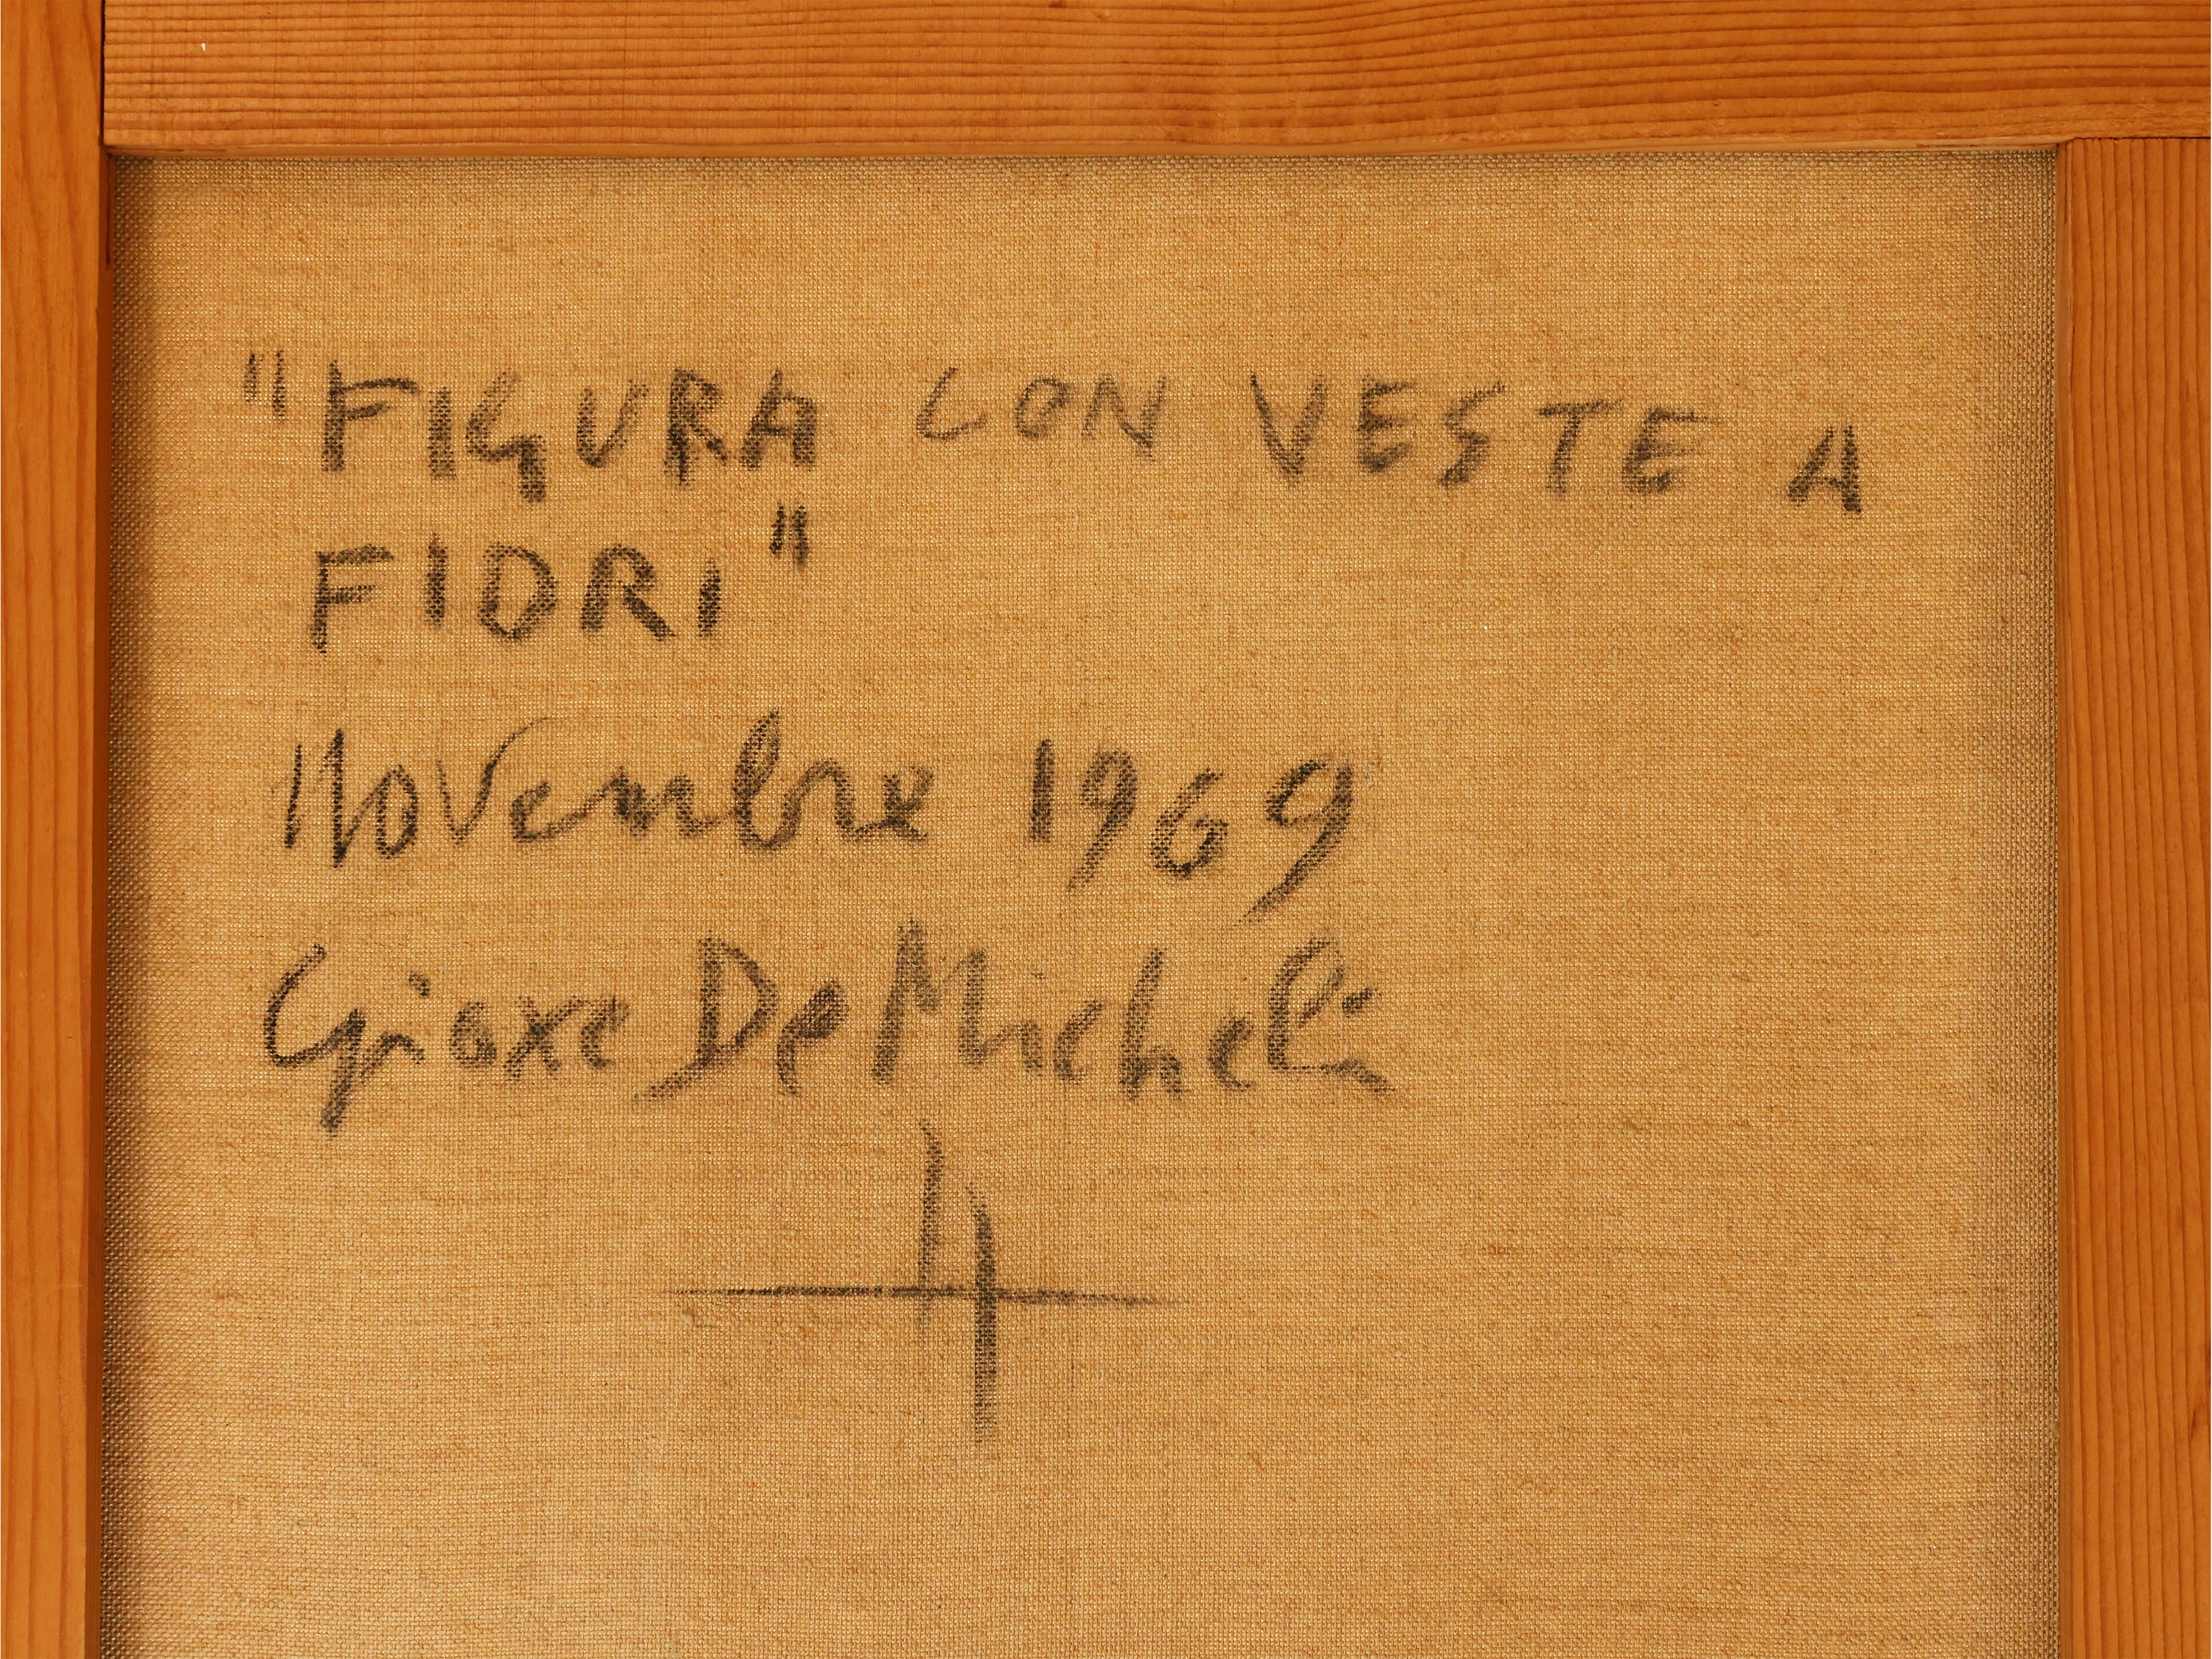 "FIGURA CON VESTE A
FIORI"
Novembre 1969
Gioxe De Micheli